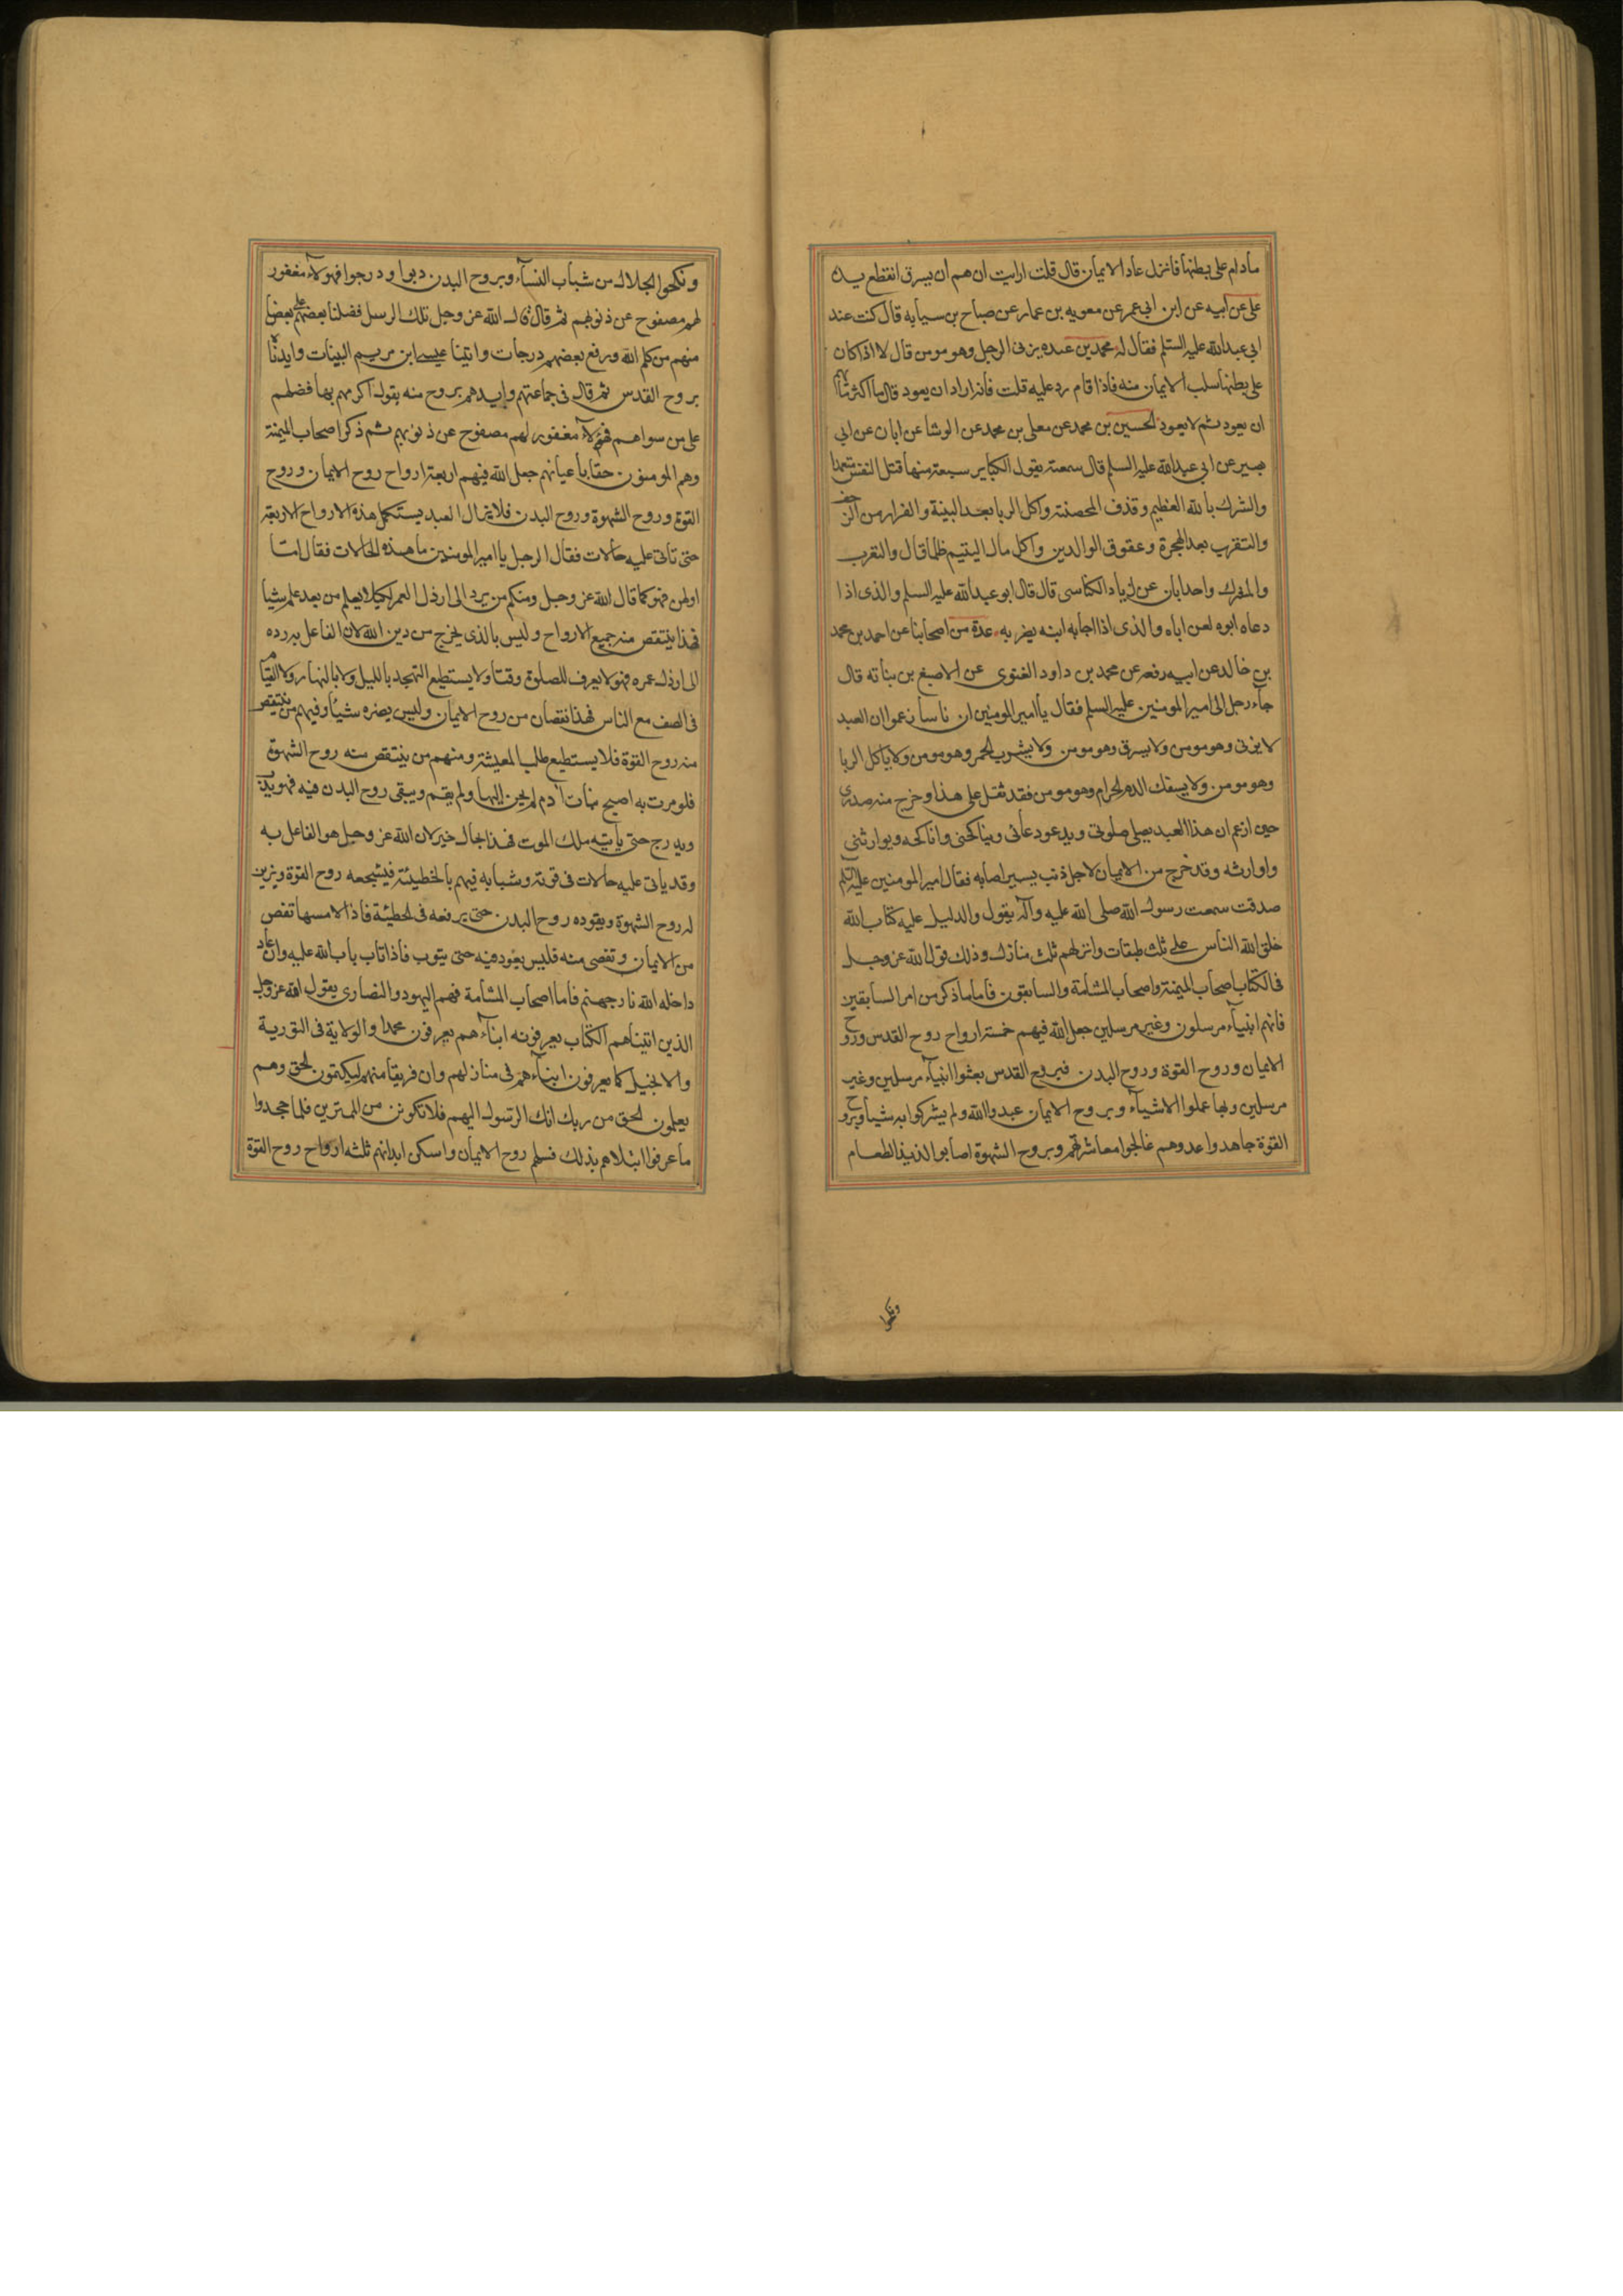 مادام على بطنها فان نزل عاد الايمان قال قلت ارايت ان هم ان يسرق انقطع يده
على عن ابيه عن ابن ابي عمر عن معويه بن عمار عن صباح بن سيابه قال كنت عند
ابي عبدالله عليه السلم فقال له محمد بن عبده يزنى الرجل وهو مومن قال لا اذا كان
على بطنها سلب الايمان منه فاذا قام رد عليه قلت فانه اراد ان يعود قال ما اكثر ما يهم
ان يعود ثم لا يعود الحسين بن محمد عن معلى بن محمد عن الوشا عن ابان عن ابي
بصير عن ابي عبدالله عليه السلم قال سمعته يقول الكباير سبعة منها قتل النفس متعمدا
والشرك بالله العظيم وقذف المحصنة واكل الربا بعد البينة والفرار من الزحف
والتقرب بعد الهجرة وعقوق الوالدين واكل مال اليتيم ظلما قال والتعرب
والشرك واحد ابان عن زياد الكناسى قال قال ابو عبدالله عليه السلم والذى اذا
دعاه ابوه لعن اباه والذى اذا اجابه ابنه يضربه عدة من اصحابنا عن احمد بن محمد
بن خالد عن ابيه رفعه عن محمد بن داود الغنوى عن الاصبغ بن نباته قال
جآء رجل الى امير المومنين عليه السلم فقال يا امير المومنين ان ناسا زعموا ان العبد
لا يزنى وهو مومن ولا يسرق وهو مومن ولا يشرب الخمر وهو مومن ولا ياكل الربا
وهو مومن ولا يسفك الدم الحرام وهو مومن فقد ثقل على هذا وخرج منه صدرى
حين ازعم ان هذا العبد يصلى صلوتى ويدعو دعائى ويناكحنى واناكحه ويوارثنى
واوارثه وقد خرج من الايمان لاجل ذنب يسير اصابه فقال امير المومنين عليه السلم
صدقت سمعت رسول الله صلى الله عليه وآله يقول والدليل عليه كتاب الله
خلق الله الناس على ثلث طبقات وانزلهم ثلث منازل وذلك قول الله عز وجل
فى الكتاب اصحاب الميمنة واصحاب المشامة والسابقون فاما ما ذكر من امر السابقين
فانهم انبيآء مرسلون وغير مرسلين جعل الله فيهم خمسة ارواح روح القدس وروح
الايمان وروح القوة وروح البدن فبروح القدس بعثوا انبيآء مرسلين وغير
مرسلين وبها علموا الاشيآء وبروح الايمان عبدوا الله ولم يشركوا به شيئا وبروح
القوة جاهدوا عدوهم عالجوا معاشهم وبروح الشهوة اصابوا لذيذ الطعام
ونكحوا
ونكحوا الحلال من شباب النسآء وبروح البدن دبوا ودرجوا فهولآء مغفور
لهم مصفوح عن ذنوبهم ثم قال قال الله عز وجل تلك الرسل فضلنا بعضهم على بعض
منهم من كلم الله ورفع بعضهم درجات واتينا عيسى ابن مريم البينات وايدناه
بروح القدس ثم قال فى جماعتهم وايدهم بروح منه يقول اكرمهم بها فضلهم
على من سواهم فهولآء مغفور لهم مصفوح عن ذنوبهم ثم ذكر اصحاب الميمنة
وهم المومنون حقا باعيانهم جعل الله فيهم اربعة ارواح روح الايمان وروح
القوة وروح الشهوة وروح البدن فلا يزال العبد يستكمل هذه الارواح الاربعة
حتى تاتى عليه حالات فقال الرجل يا امير المومنين ما هذه الحالات فقال امّا
اولهن فهو كما قال الله عز وجل ومنكم من يرد الى ارذل العمر لكيلا يعلم من بعد علم شيئا
فهذا ينتقص منه جميع الارواح وليس بالذى يخرج من دين الله لان الفاعل به رده
الى ارذل عمره فهو لا يعرف للصلوة وقتا ولا يستطيع التهجد بالليل ولا بالنهار ولا القيام
فى الصف مع الناس فهذا نقصان من روح الايمان وليس يضره شيئا وفيهم من ينتقص
منه روح القوة فلا يستطيع طلب المعيشة ومنهم من ينتقص منه روح الشهوة
فلو مرت به اصبح بنات آدم لم يحن اليها ولم يقم ويبقى روح البدن فيه فهو يدب
ويدرج حتى يأتيه ملك الموت فهذا بحال خير لان الله عز وجل هو الفاعل به
وقد ياتى عليه حالات فى قوته وشبابه فيهم بالخطيئة فيشجعه روح القوة ويزين
له روح الشهوة ويقوده روح البدن حتى يرفعه فى الخطيئة فاذا لامسها نقص
من الايمان وتفصى منه فليس يعود فيه حتى يتوب فاذا تاب تاب الله عليه وان عاد
داخله الله نار جهنم فاما اصحاب المشامة فهم اليهود والنصارى يقول الله عز وجل
الذين اتيناهم الكتاب يعرفونه ابنآءهم يعرفون محمدا والولاية فى التورية
والانجيل كما يعرفون ابنآءهم فى منازلهم وان فريقا منهم ليكتمون الحق وهم
يعلمون الحق من ربك انك الرسول اليهم فلا تكونن من الممترين فلما جحدوا
ما عرفوا ابتلاهم بذلك فسلبهم روح الايمان واسكن ابدانهم ثلثه ارواح روح القوة